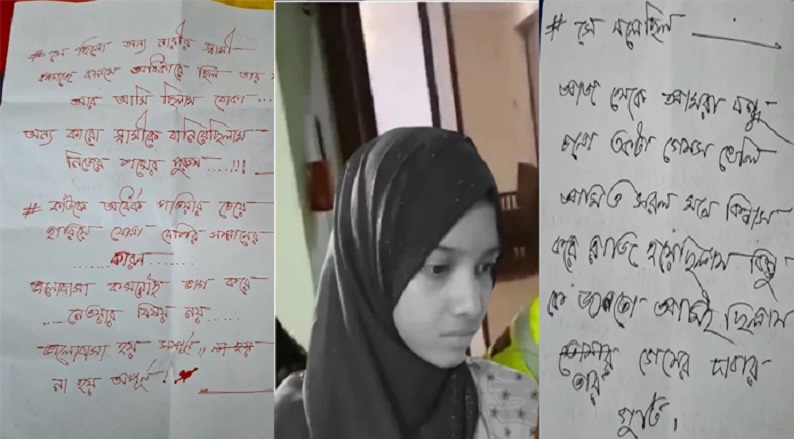 # সে ছিলো অন্য নারীর স্বামী
কাগজে কলমে অধিকারে ছিল তার
আর আমি ছিলাম বোকা ...
অন্য কারো স্বামীকে বানিয়েছিলাম
নিজের শখের পুরুষ ...!!!
# কাউকে অর্ধেক পাওয়ার চেয়ে
হারিয়ে ফেলা বেশি সম্মানের
কারন
ভালোবাসা কখনোই ভাগ করে
...নেওয়ার বিষয় নয়.....
ভালোবাসা হয় সম্পূর্ণ,, না হয়
না হয় অপূর্ণ!
# সে বলেছিল
আজ থেকে আমরা বন্ধু
চলো একটা গেমস খেলি
আমিত সরল মনে বিশ্বাস
করে রাজি হয়েছিলাম কিন্তু
কে জানতো আমিই ছিলাম
তোমার গেমের দাবার
গুটি।